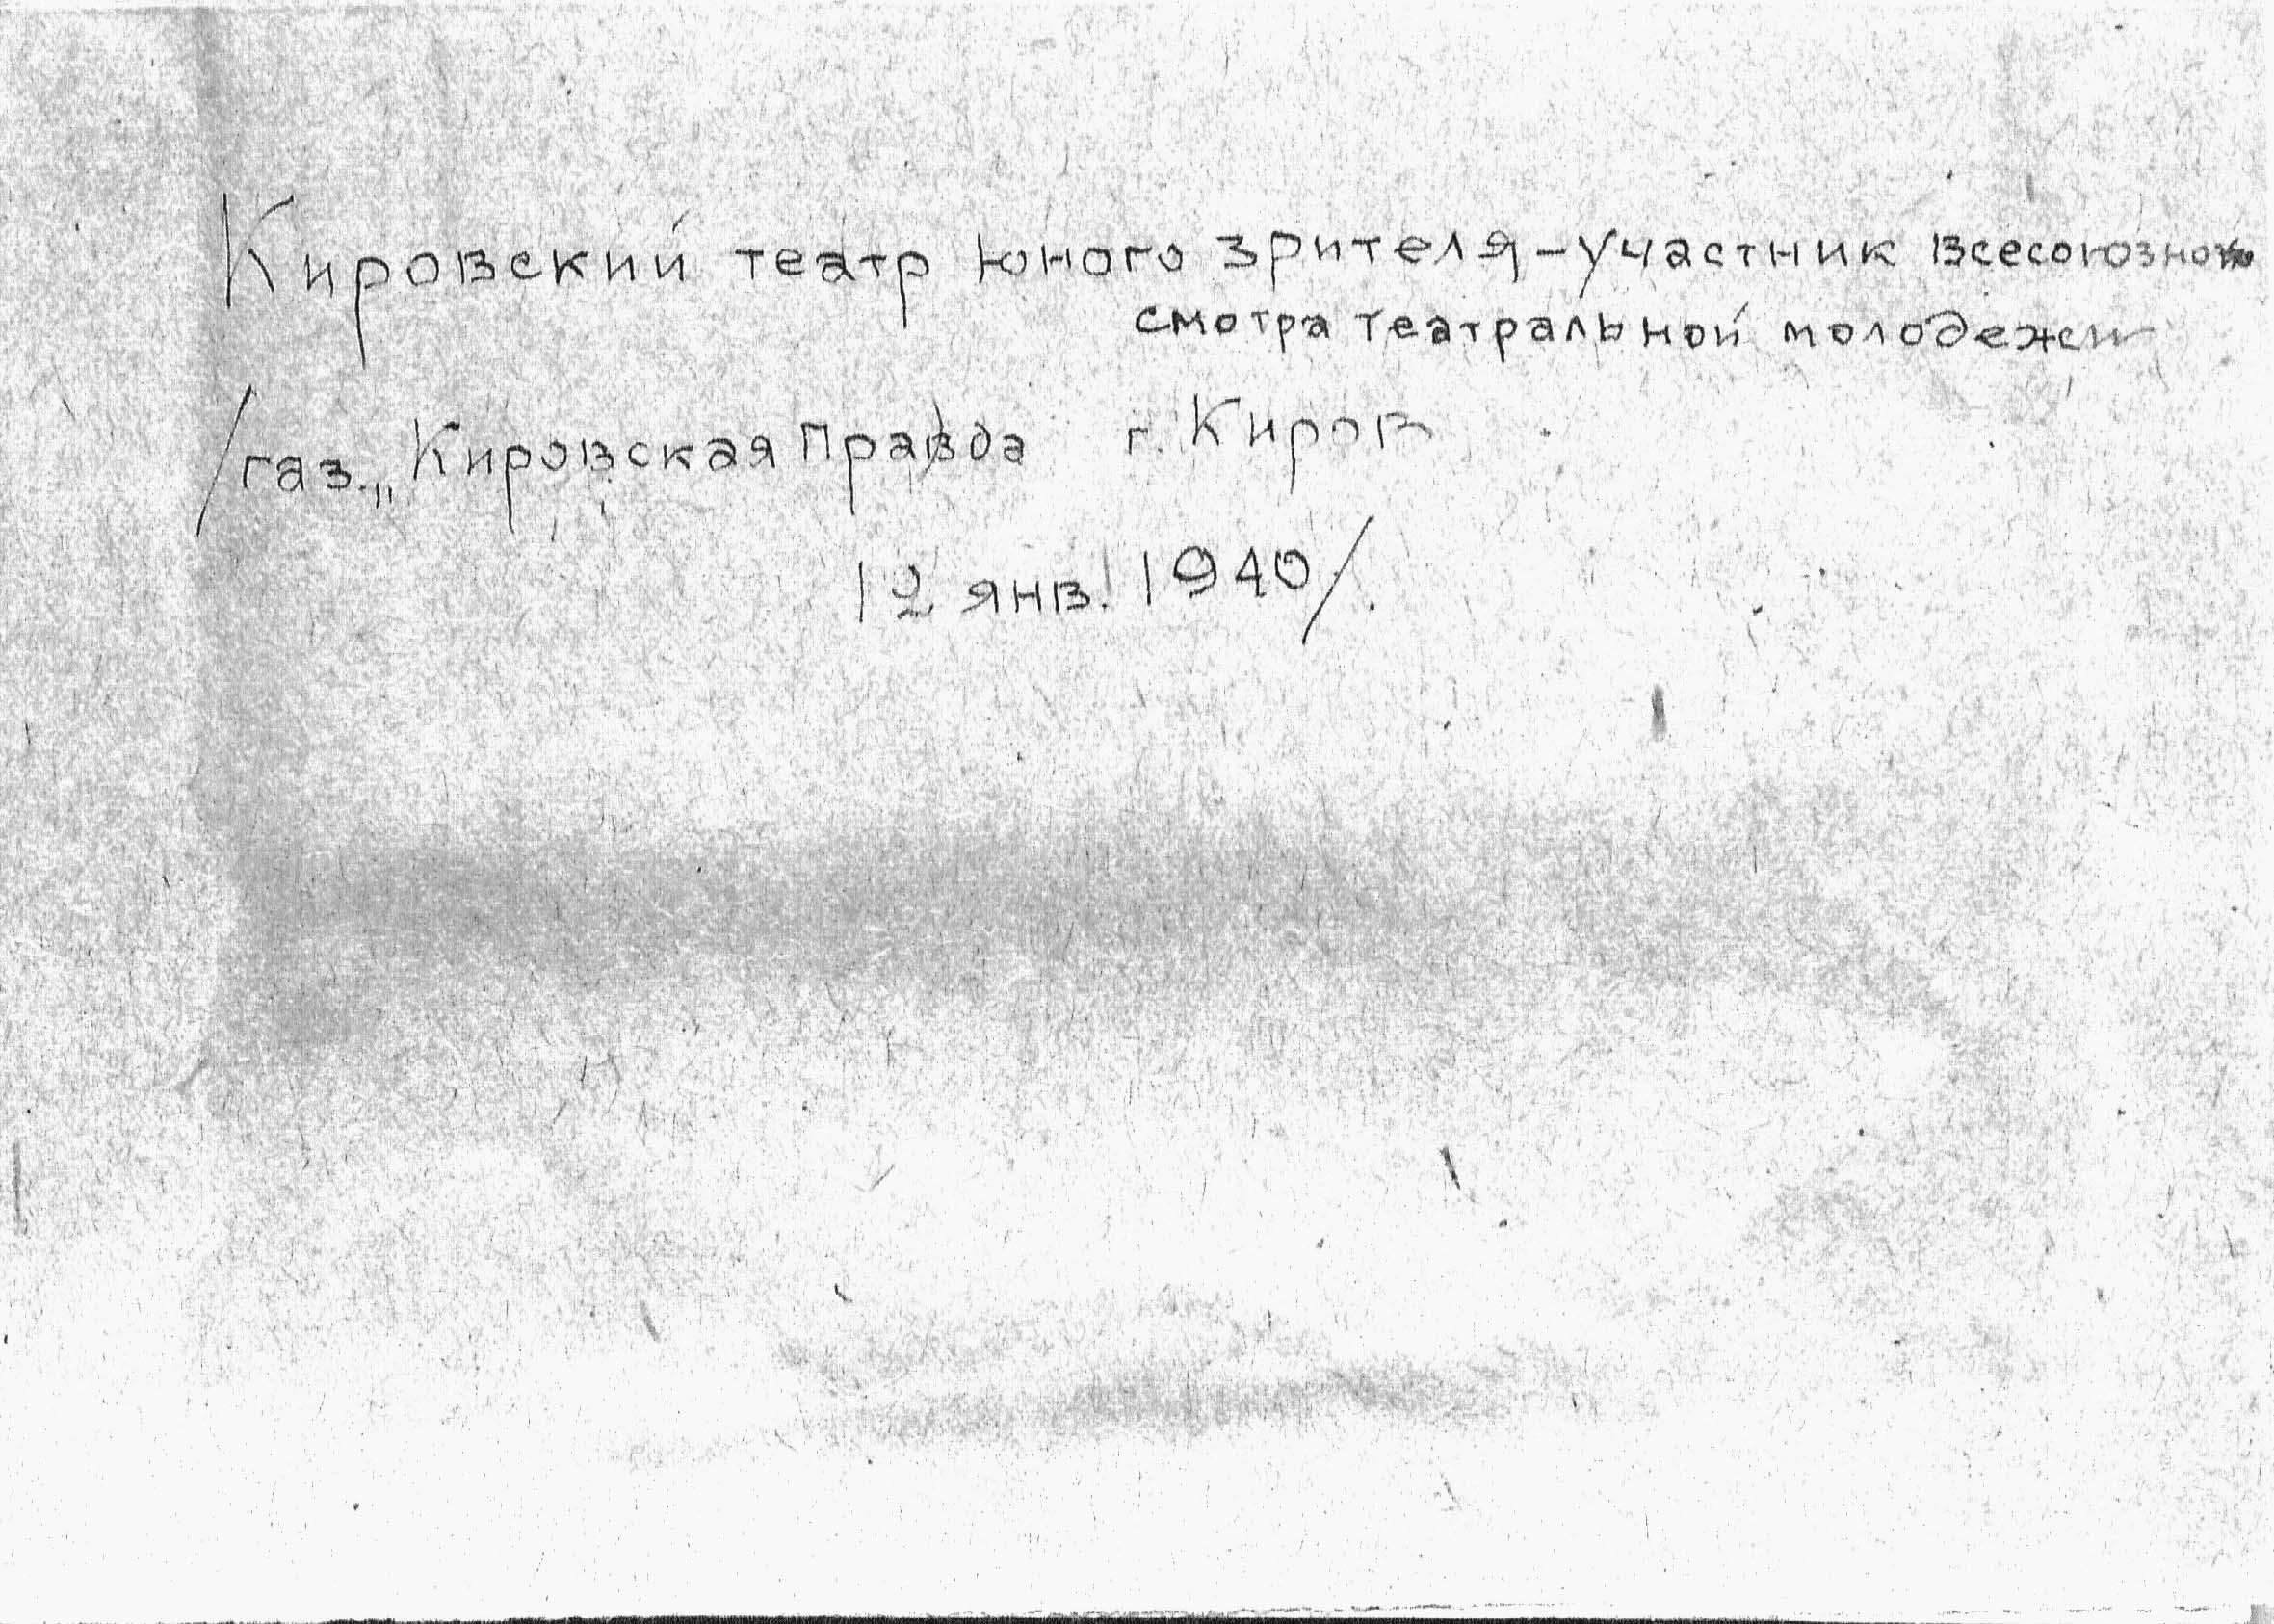 Кировский театр юного зрителя – участник всесоюзного
смотра театральной молодежи
/газ. „Кировская Правда г. Киров
12 янв. 1940/.